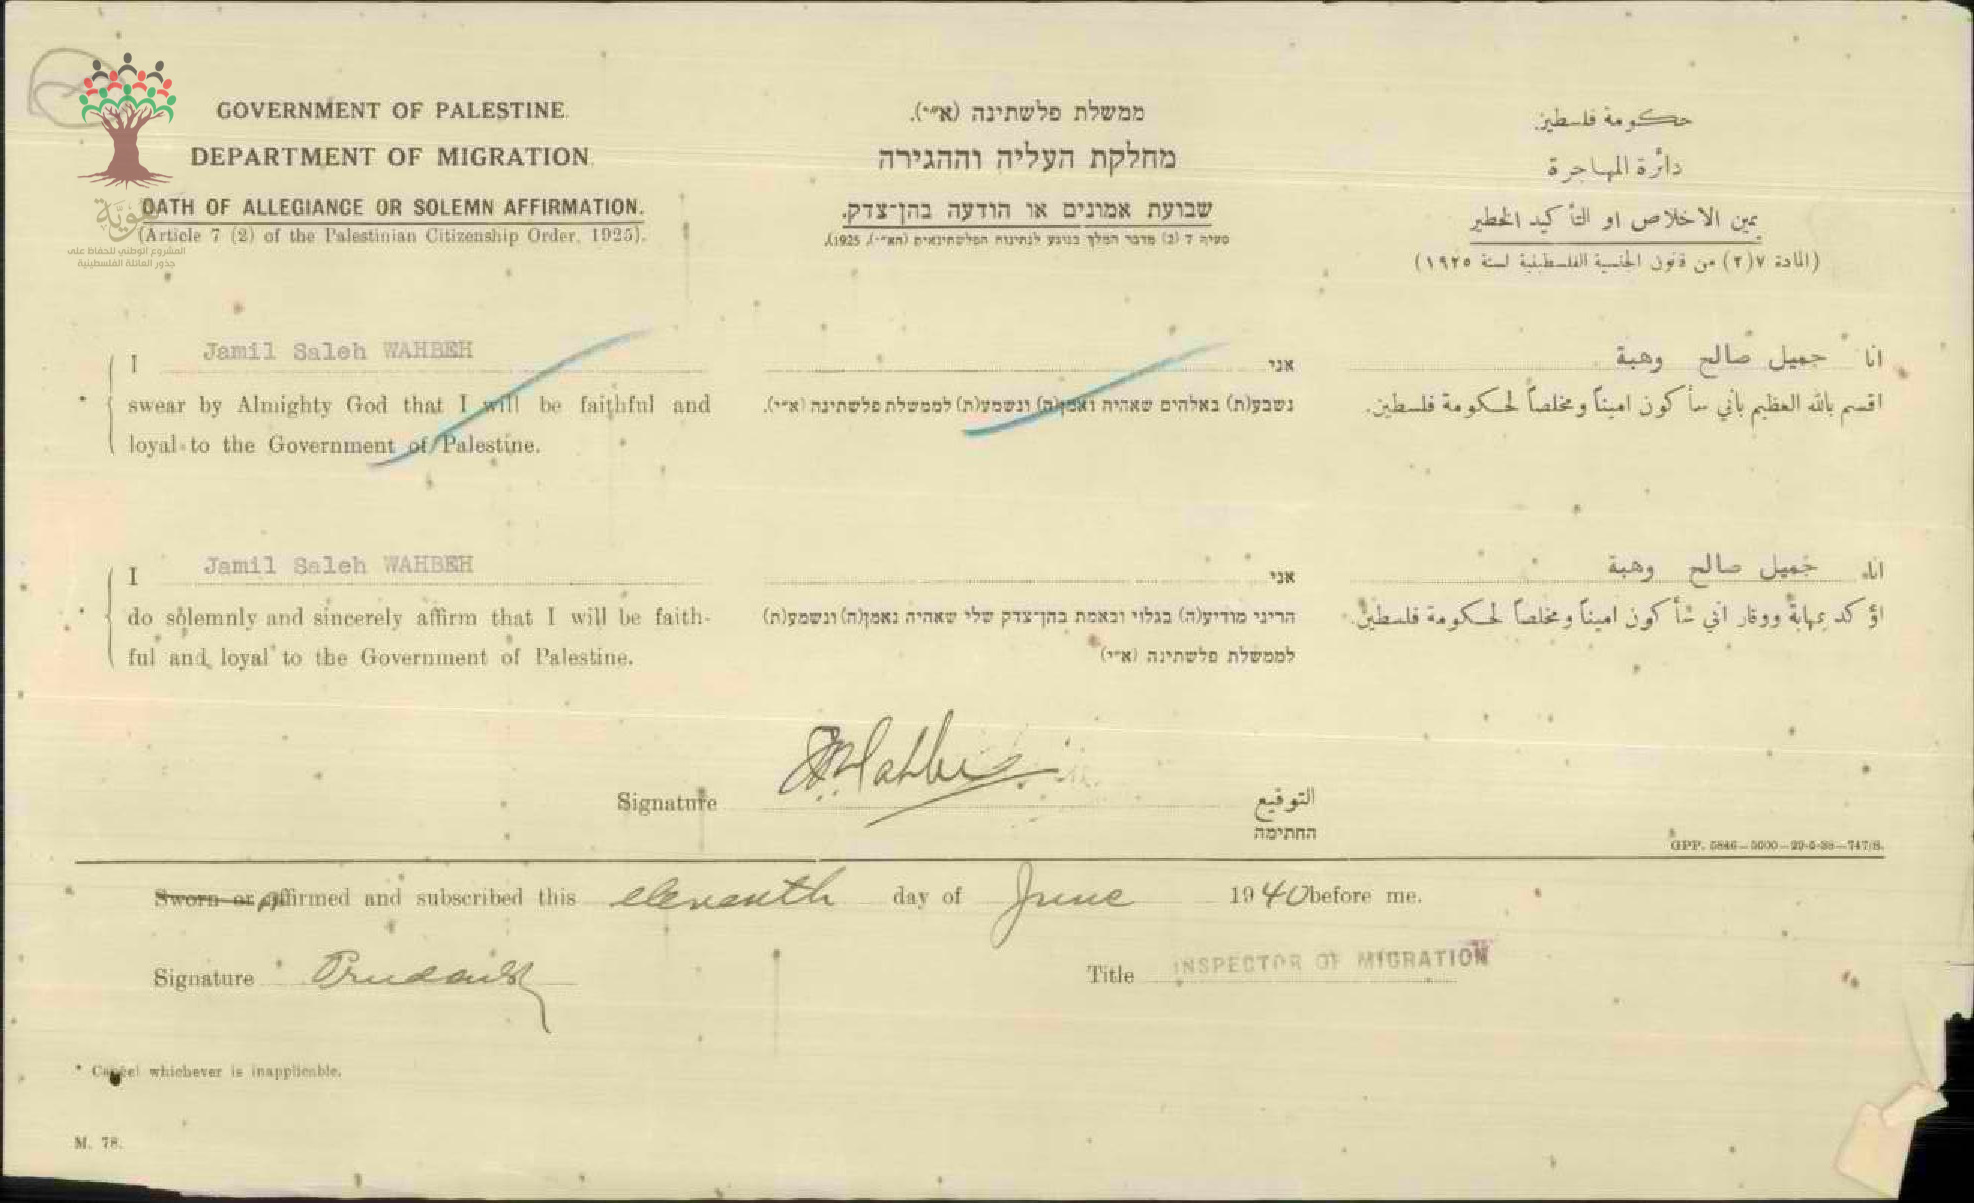 GOVERNMENT OF PALESTINE.
DEPARTMENT OF MIGRATION.
OATH OF ALLEGIANCE OR SOLEMN AFFIRMATION.
(Article 7 (2) of the Palestinian Citizenship Order, 1925).
ממשלת פלשתינה (א״י).
מחלקת העליה וההגירה
שבועת אמונים או הודעה בהן־צדק.
סעיף 7 (2) מדבר המלך בנוגע לנתינות הפלשתינאית (הא״י), 1925).
حكومة فلسطين.
دائرة المهاجرة
يمين الاخلاص او التأكيد الخطير
(المادة ٧(٢) من قانون الجنسية الفلسطينية لسنة ١٩٢٥)
هوية
المشروع الوطني للحفاظ على
جذور العائلة الفلسطينية
I Jamil Saleh WAHBEH
* swear by Almighty God that I will be faithful and
loyal to the Government of Palestine.
אני
נשבע(ת) באלהים שאהיה נאמן(ה) ונשמע(ת) לממשלת פלשתינה (א״י).
انا جميل صالح وهبة
اقسم بالله العظيم بأني سأكون اميناً ومخلصاً لحكومة فلسطين.
I Jamil Saleh WAHBEH
* do solemnly and sincerely affirm that I will be faith-
ful and loyal to the Government of Palestine.
אני
הריני מודיע(ה) בגלוי ובאמת בהן־צדק שלי שאהיה נאמן(ה) ונשמע(ת)
לממשלת פלשתינה (א״י)
انا جميل صالح وهبة
اؤكد بمهابة ووقار اني سأكون اميناً ومخلصاً لحكومة فلسطين.
Signature التوقيع
החתימה
GPP. 5846—5000—29-6-38—747/S.
Sworn or affirmed and subscribed this eleventh day of June 1940 before me.
Signature Title INSPECTOR OF MIGRATION
* Cancel whichever is inapplicable.
M. 78.